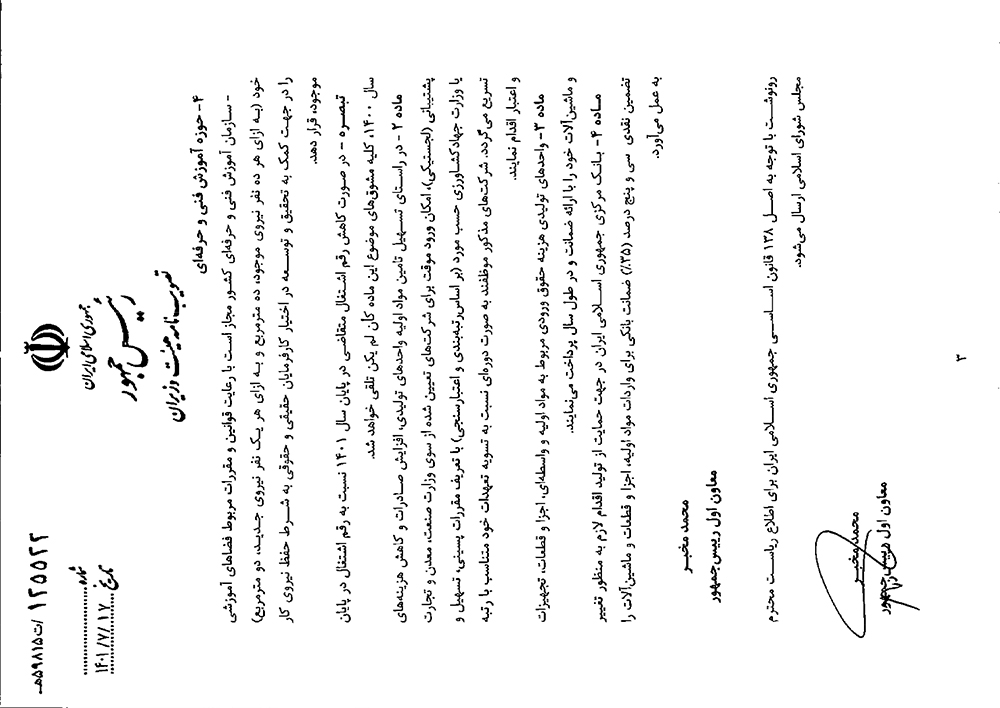 ۱۲۵۵۲۲ /ت۵۹۸۱۵هـ
شماره
۱۴۰۱/۷/۱۷
تاریخ
جمهوری اسلامی ایران
رئیس جمهور
تصویب نامه هیئت وزیران
۴- حوزه آموزش فنی و حرفه‌ای
- سازمان آموزش فنی و حرفه‌ای کشور مجاز است با رعایت قوانین و مقررات مربوط فضاهای آموزشی
خود (به ازای هر ده نفر نیروی موجود، ده مترمربع و به ازای هر یک نفر نیروی جدید، دو مترمربع)
را در جهت کمک به تحقیق و توسعه در اختیار کارفرمایان حقیقی و حقوقی به شرط حفظ نیروی کار
موجود، قرار دهد.
تبصره - در صورت کاهش رقم اشتغال متقاضی در پایان سال ۱۴۰۱ نسبت به رقم اشتغال در پایان
سال ۱۴۰۰، کلیه مشوق‌های موضوع این ماده کان لم یکن تلقی خواهد شد.
ماده ۲- در راستای تسهیل تامین مواد اولیه واحدهای تولیدی، افزایش صادرات و کاهش هزینه‌های
پشتیبانی (لجستیکی)، امکان ورود موقت برای شرکت‌های تعیین شده از سوی وزارت صنعت، معدن و تجارت
یا وزارت جهادکشاورزی حسب مورد (بر اساس رتبه‌بندی و اعتبارسنجی) با تعریف مقررات پسینی، تسهیل و
تسریع می‌گردد. شرکت‌های مذکور موظفند به صورت دوره‌ای نسبت به تسویه تعهدات خود متناسب با رتبه
و اعتبار اقدام نمایند.
ماده ۳- واحدهای تولیدی هزینه حقوق ورودی مربوط به مواد اولیه و واسطه‌ای، اجزا و قطعات، تجهیزات
و ماشین‌آلات خود را با ارائه ضمانت و در طول سال پرداخت می‌نمایند.
ماده ۴- بانک مرکزی جمهوری اسلامی ایران در جهت حمایت از تولید اقدام لازم به منظور تغییر
تضمین نقدی سی و پنج درصد (۳۵٪) ضمانت بانکی برای واردات مواد اولیه، اجزا و قطعات و ماشین‌آلات را
به عمل می‌آورد.
محمد مخبر
معاون اول رییس‌جمهور
رونوشت با توجه به اصل ۱۳۸ قانون اساسی جمهوری اسلامی ایران برای اطلاع ریاست محترم
مجلس شورای اسلامی ارسال می‌شود.
محمد مخبر
معاون اول رییس جمهور
۳